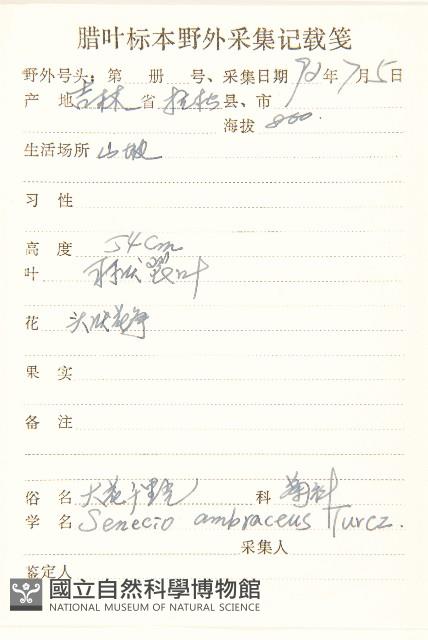 腊叶标本野外采集记载笺
野外号头：第 册 号、采集日期 92年7月5日
产 地 吉林 省 县、市
海拔 800
生活场所 山坡
习 性
高 度 54cm
叶 羽状裂叶
花 头状花序
果 实
备 注
俗 名 大花千里光 科 菊科
学 名 Senecio ambraceus Turcz.
采集人
鉴定人
國立自然科學博物館
NATIONAL MUSEUM OF NATURAL SCIENCE